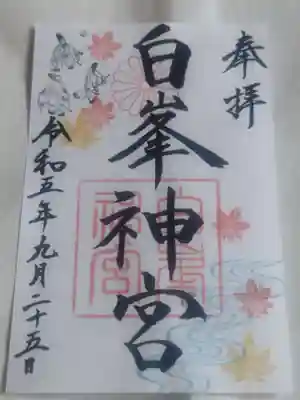 奉拝
白峯神宮
令和五年九月二十五日